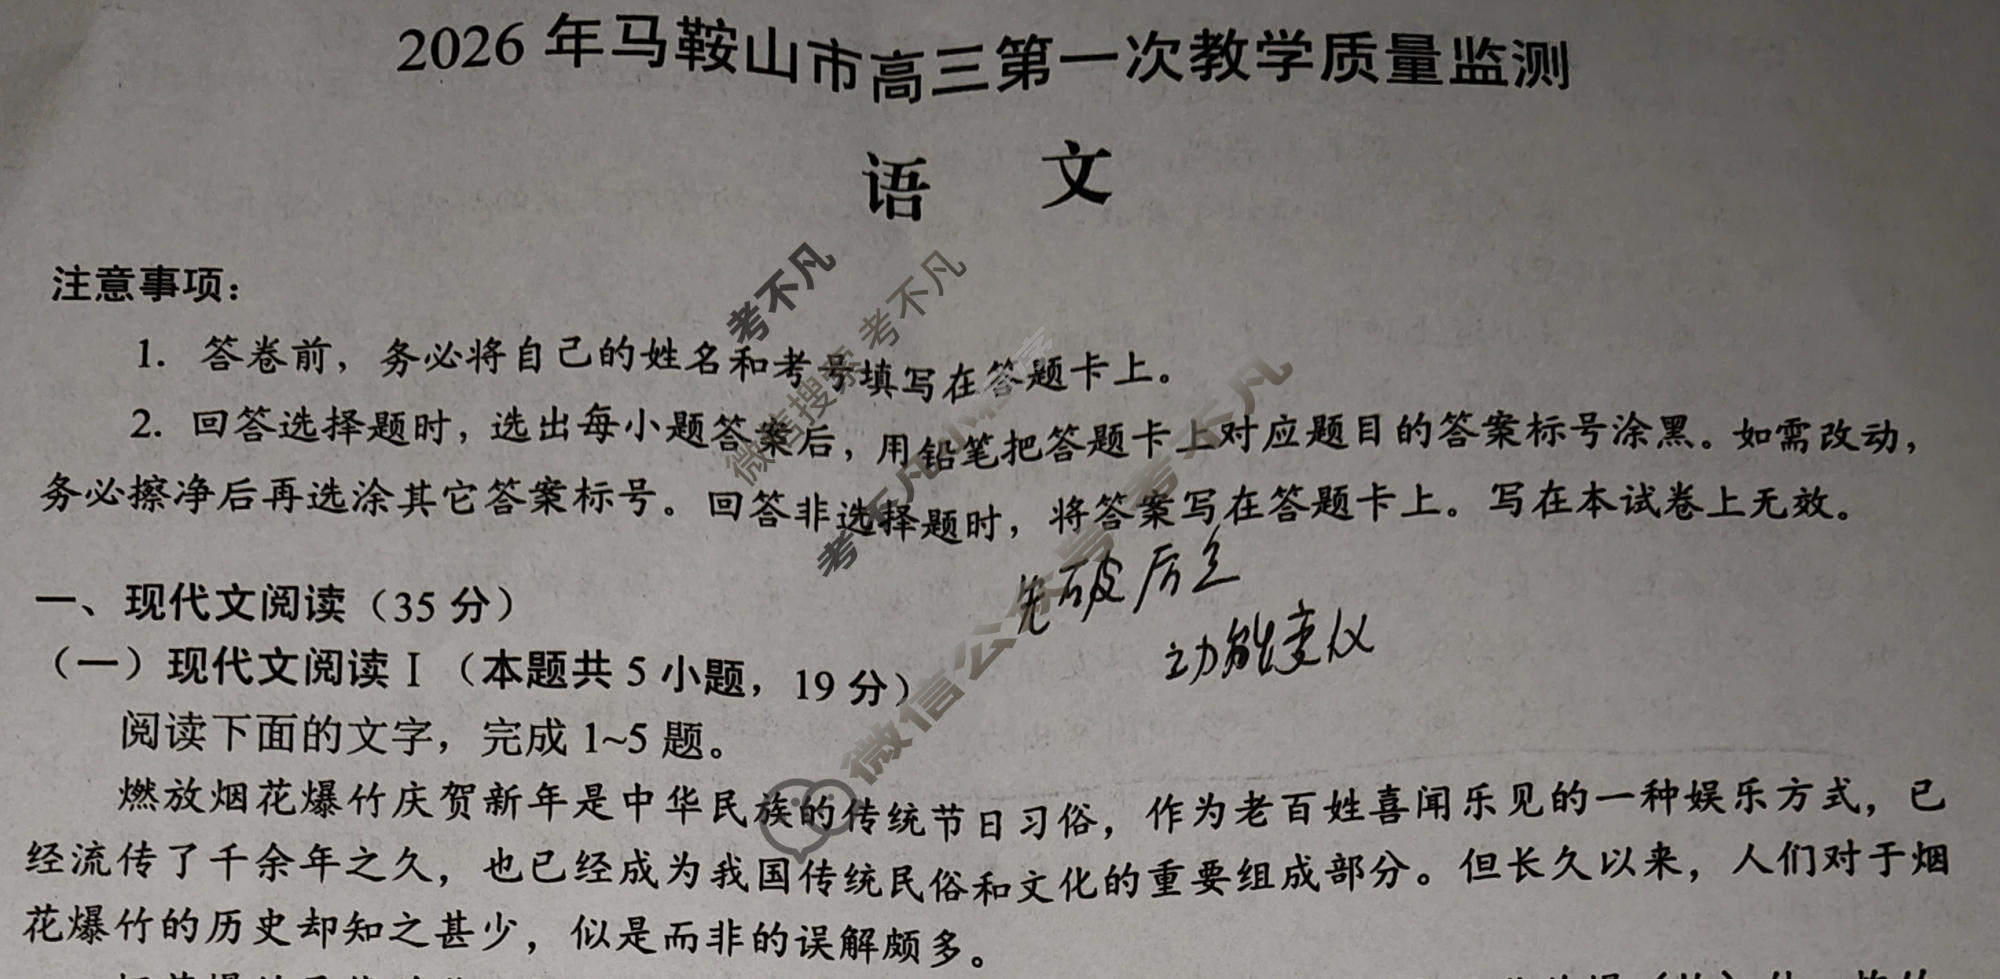 2026年马鞍山市高三第一次教学质量监测
语 文
注意事项：
1. 答卷前，务必将自己的姓名和考号填写在答题卡上。
2. 回答选择题时，选出每小题答案后，用铅笔把答题卡上对应题目的答案标号涂黑。如需改动，
务必擦净后再选涂其它答案标号。回答非选择题时，将答案写在答题卡上。写在本试卷上无效。
先破后立
功能变仪
一、现代文阅读（35分）
（一）现代文阅读Ⅰ（本题共5小题，19分）
阅读下面的文字，完成1~5题。
燃放烟花爆竹庆贺新年是中华民族的传统节日习俗，作为老百姓喜闻乐见的一种娱乐方式，已
经流传了千余年之久，也已经成为我国传统民俗和文化的重要组成部分。但长久以来，人们对于烟
花爆竹的历史却知之甚少，似是而非的误解颇多。
考不凡
微信搜索 考不凡
考不凡小程序
微信公众号 考不凡